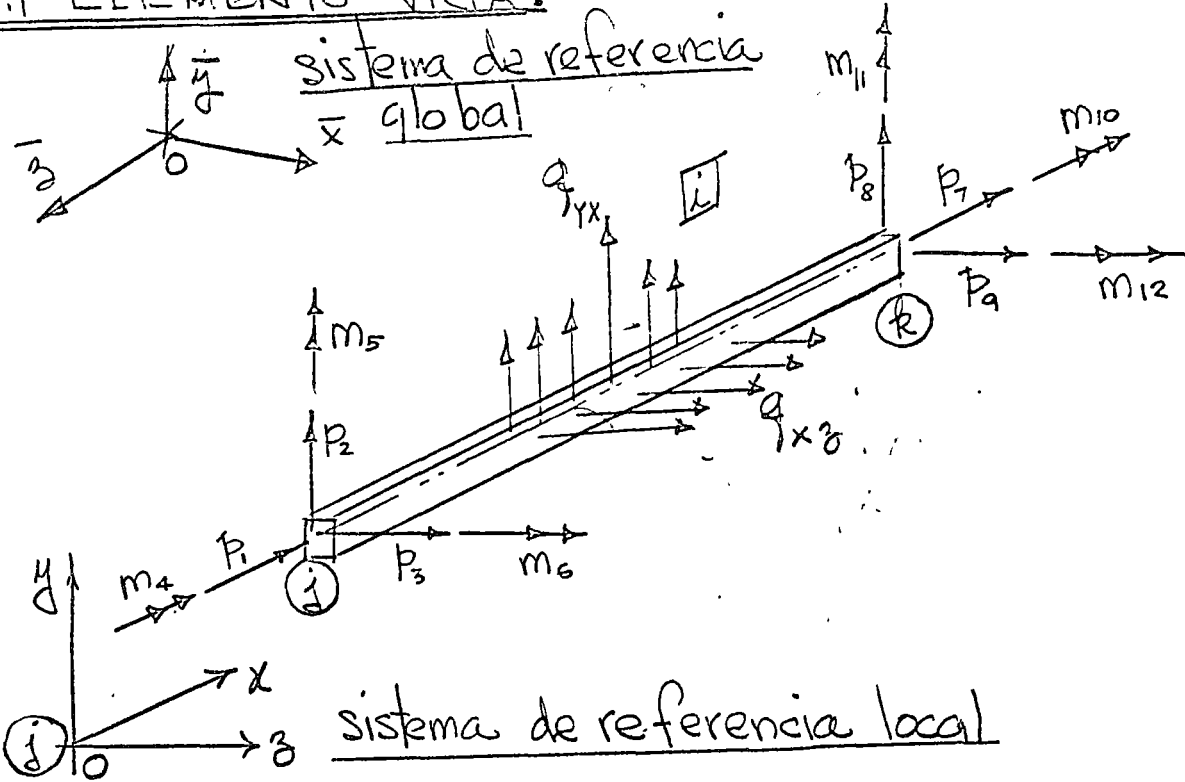 ELEMENTO VIGA:
sistema de referencia
global
ȳ
x̄
z̄
O
q_yx
i
m₁₁
p₈
p₇
m₁₀
p₉
m₁₂
k
q_xz
m₅
p₂
p₁
m₄
p₃
m₆
j
y
x
z
j
O
sistema de referencia local